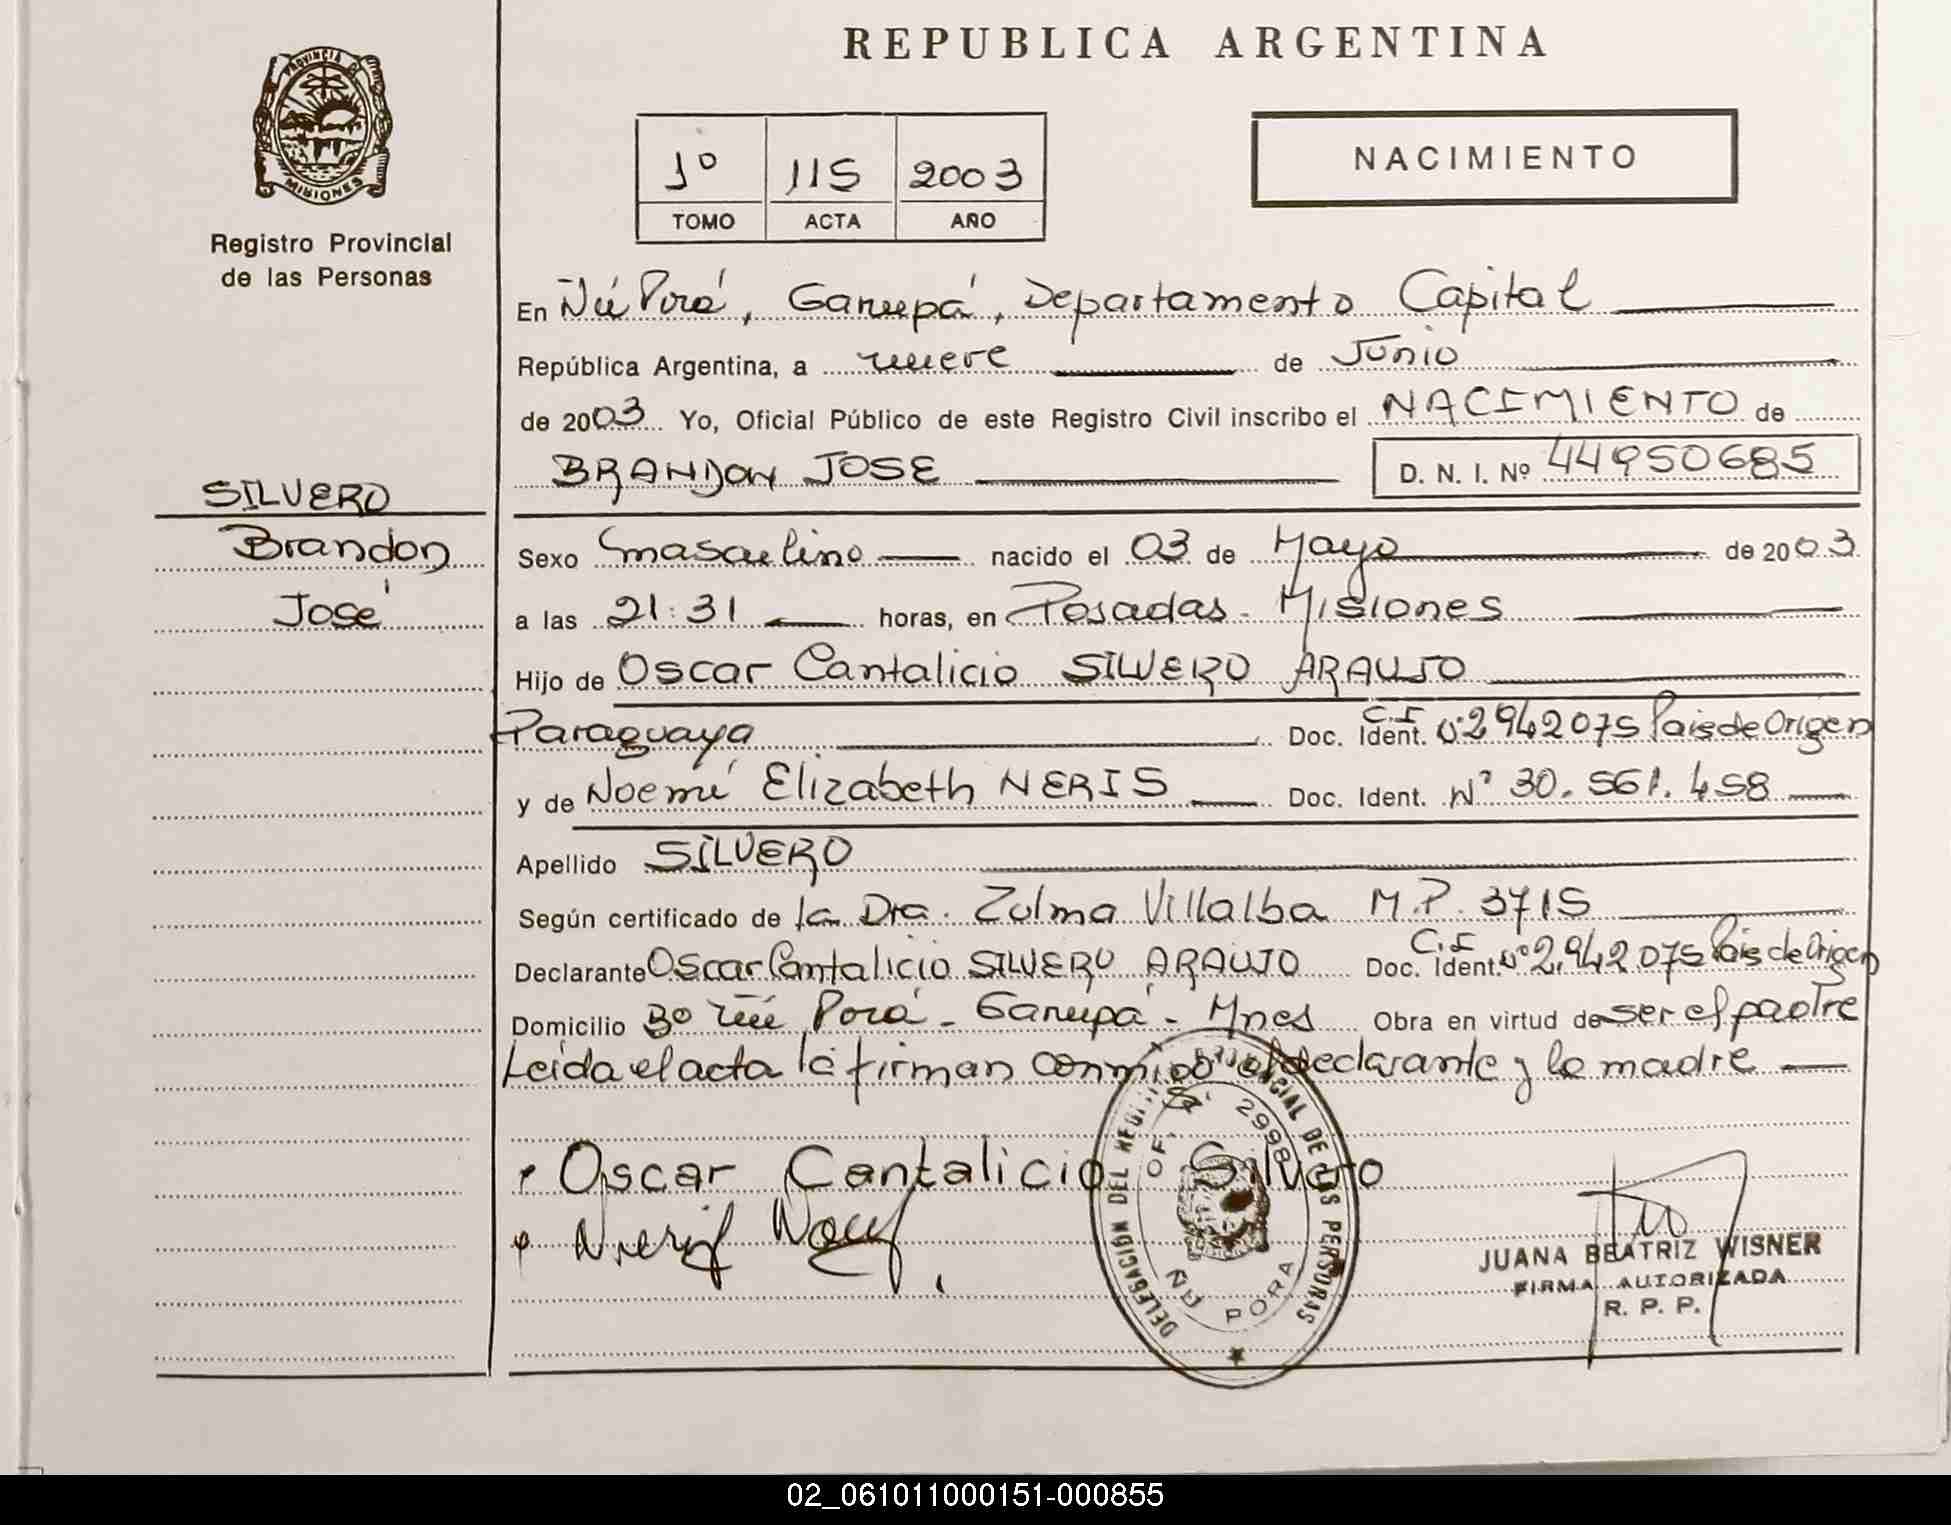 REPUBLICA ARGENTINA
PROVINCIA DE
MISIONES
Registro Provincial
de las Personas
1º 115 2003
TOMO ACTA AÑO
NACIMIENTO
En Ñú Porá, Garupá, Departamento Capital
República Argentina, a nueve de Junio
de 2003 Yo, Oficial Público de este Registro Civil inscribo el NACIMIENTO de
BRANDON JOSE D. N. I. Nº 44950685
SILVERO
Brandon
José
Sexo masculino nacido el 03 de Mayo de 2003
a las 21:31 horas, en Posadas - Misiones
Hijo de Oscar Cantalicio SILVERO ARAUJO
Paraguaya Doc. Ident. C.I Nº 2942075 Pais de Origen
y de Noemí Elizabeth NERIS Doc. Ident. Nº 30.561.458
Apellido SILVERO
Según certificado de la Dra. Zulma Villalba M.P. 3715
Declarante Oscar Cantalicio SILVERO ARAUJO Doc. Ident. C.I Nº 2.942.075 Pais de Origen
Domicilio Bº Ñú Porá - Garupá - Mnes Obra en virtud de ser el padre
Leida el acta la firman conmigo el declarante y la madre
Oscar Cantalicio Silvero
DELEGACIÓN DEL REGISTRO PROVINCIAL DE LAS PERSONAS
OF. 2998
ÑU PORA
JUANA BEATRIZ WISNER
FIRMA AUTORIZADA
R. P. P.
02_061011000151-000855